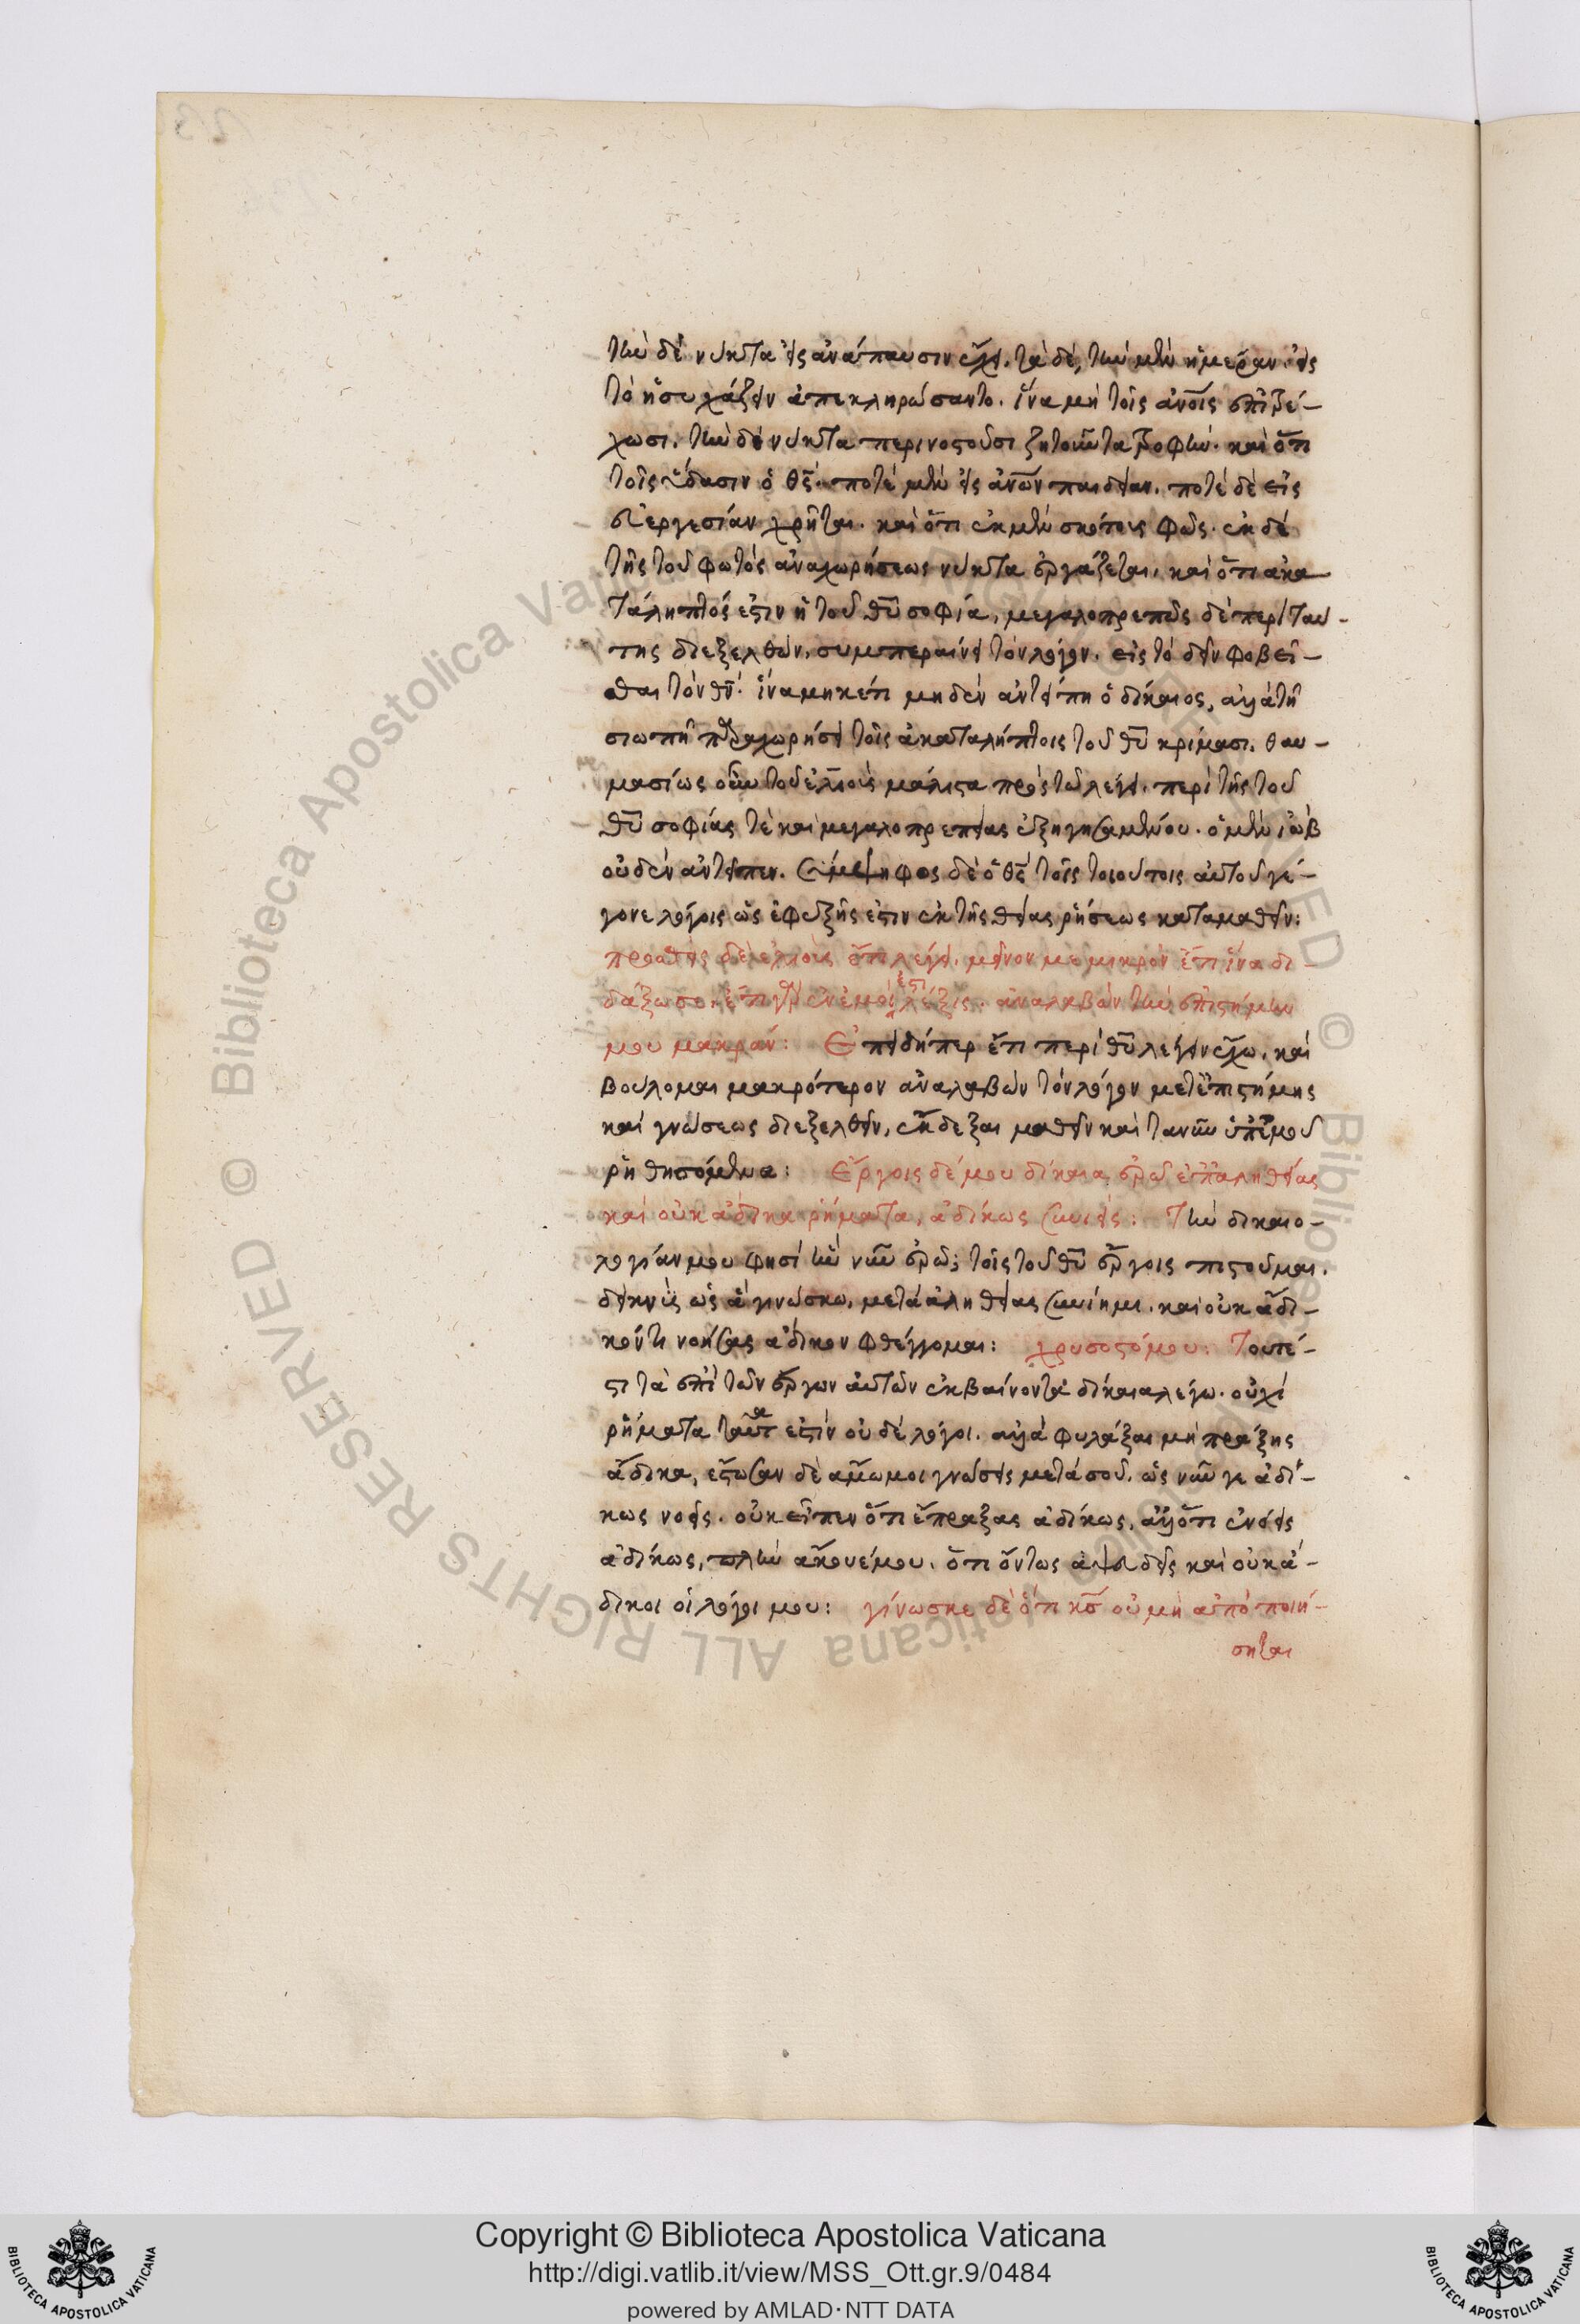 τὴν δὲ νύκτα εἰς ἀνάπαυσιν ἔχει. τὰ δὲ, τὴν μὲν ἡμέραν εἰς
τὸ ἡσυχάζειν ἀπεκληρώσαντο. ἵνα μὴ τοῖς ἀνοις ἐπιτρέ-
χωσι. τὴν δὲ νύκτα περινοστοῦσι ζητοῦντα τροφήν. καὶ ὅτι
τοῖς ὕδασιν ὁ θς. ποτὲ μὲν εἰς ἀνων παιδείαν. ποτὲ δὲ εἰς
εὐεργεσίαν χρῆται. καὶ ὅτι ἐκ μὲν σκότους φῶς. ἐκ δὲ
τῆς τοῦ φωτὸς ἀναχωρήσεως νύκτα ἐργάζεται. καὶ ὅτι ἀκα
τάληπτός ἐστιν ἡ τοῦ θυ σοφία, μεγαλοπρεπῶς δὲ περὶ ταύ-
της διεξελθὼν, συμπεραίνει τὸν λόγον. εἰς τὸ δεῖν φοβεῖ-
σθαι τὸν θν. ἵνα μηκέτι μηδὲν ἀντείπη ὁ δίκαιος, ἀλλὰ τῆ
σιωπῆ παραχωρήσει τοῖς ἀκαταλήπτοις τοῦ θυ κρίμασι. θαυ-
μασίως οὖν τοῦ ἐλιοὺς μάλιστα πρὸς τῶ λέγει. περὶ τῆς τοῦ
θυ σοφίας τὲ καὶ μεγαλοπρεπείας ἐξηγησαμένου. ὁ μὲν ἰὼβ
οὐδὲν ἀντεῖπεν. σύμψηφος δὲ ὁ θς τοῖς τοιούτοις αὐτοῦ γέ-
γονε λόγοις ὡς ἐφεξῆς ἐστιν ἐκ τῆς θείας ῥήσεως καταμαθεῖν:
προσθεὶς δὲ ἐλιοὺς ἔτι λέγει. μεῖνόν με μικρὸν ἔτι ἵνα δι-
δάξω σε. ἔτι γὰρ ἐν ἐμοί ἐστι λέξις. ἀναλαβὼν τὴν ἐπιστήμην
μου μακράν: Ἐπειδήπερ ἔτι περὶ θυ λέγειν ἔχω, καὶ
βούλομαι μακρότερον ἀναλαβὼν τὸν λόγον μετ' ἐπιστήμης
καὶ γνώσεως διεξελθεῖν, ἔκδεξαι μαθεῖν καὶ τὰ νῦν ὑπ' ἐμοῦ
ῥηθησόμενα: Ἔργοις δέ μου δίκαια ἐρῶ ἐπ' ἀληθείας
καὶ οὐκ ἄδικα ῥήματα, ἀδίκως συνιεῖς: Τὴν δικαιο-
λογίαν μου φησὶ ἣν νῦν ἐρῶ; τοῖς τοῦ θυ ἔργοις πιστοῦμαι.
δεικνὺς ὡς ἃ γινώσκω, μετὰ ἀληθείας συνίημι. καὶ οὐκ ἄδι-
κόν τι νοήσας ἄδικον φθέγγομαι: χρυσοστόμου: Τουτέ-
στι τὰ ἐπὶ τῶν ἔργων αὐτῶν ἐκβαίνοντα δίκαια λέγω. οὐχὶ
ῥήματα ταῦτα ἐστὶν οὐδὲ λόγοι. ἀλλὰ φύλαξαι μὴ πράξης
ἄδικα, ἔστωσαν δὲ ἄμωμοι γνώσεις μετὰ σοῦ. ὡς νῦν γε ἀδί-
κως νοεῖς. οὐκ εἶπεν ὅτι ἔπραξας ἀδίκως, ἀλλ' ὅτι ἐνόεις
ἀδίκως, πλὴν ἄκουέ μου. ὅτι ὄντως ἀψευδεῖς καὶ οὐκ ἄ-
δικοι οἱ λόγοι μου: γίνωσκε δὲ ὅτι κς οὐ μὴ ἀποποιή-
σηται
Copyright © Biblioteca Apostolica Vaticana
http://digi.vatlib.it/view/MSS_Ott.gr.9/0484
powered by AMLAD·NTT DATA